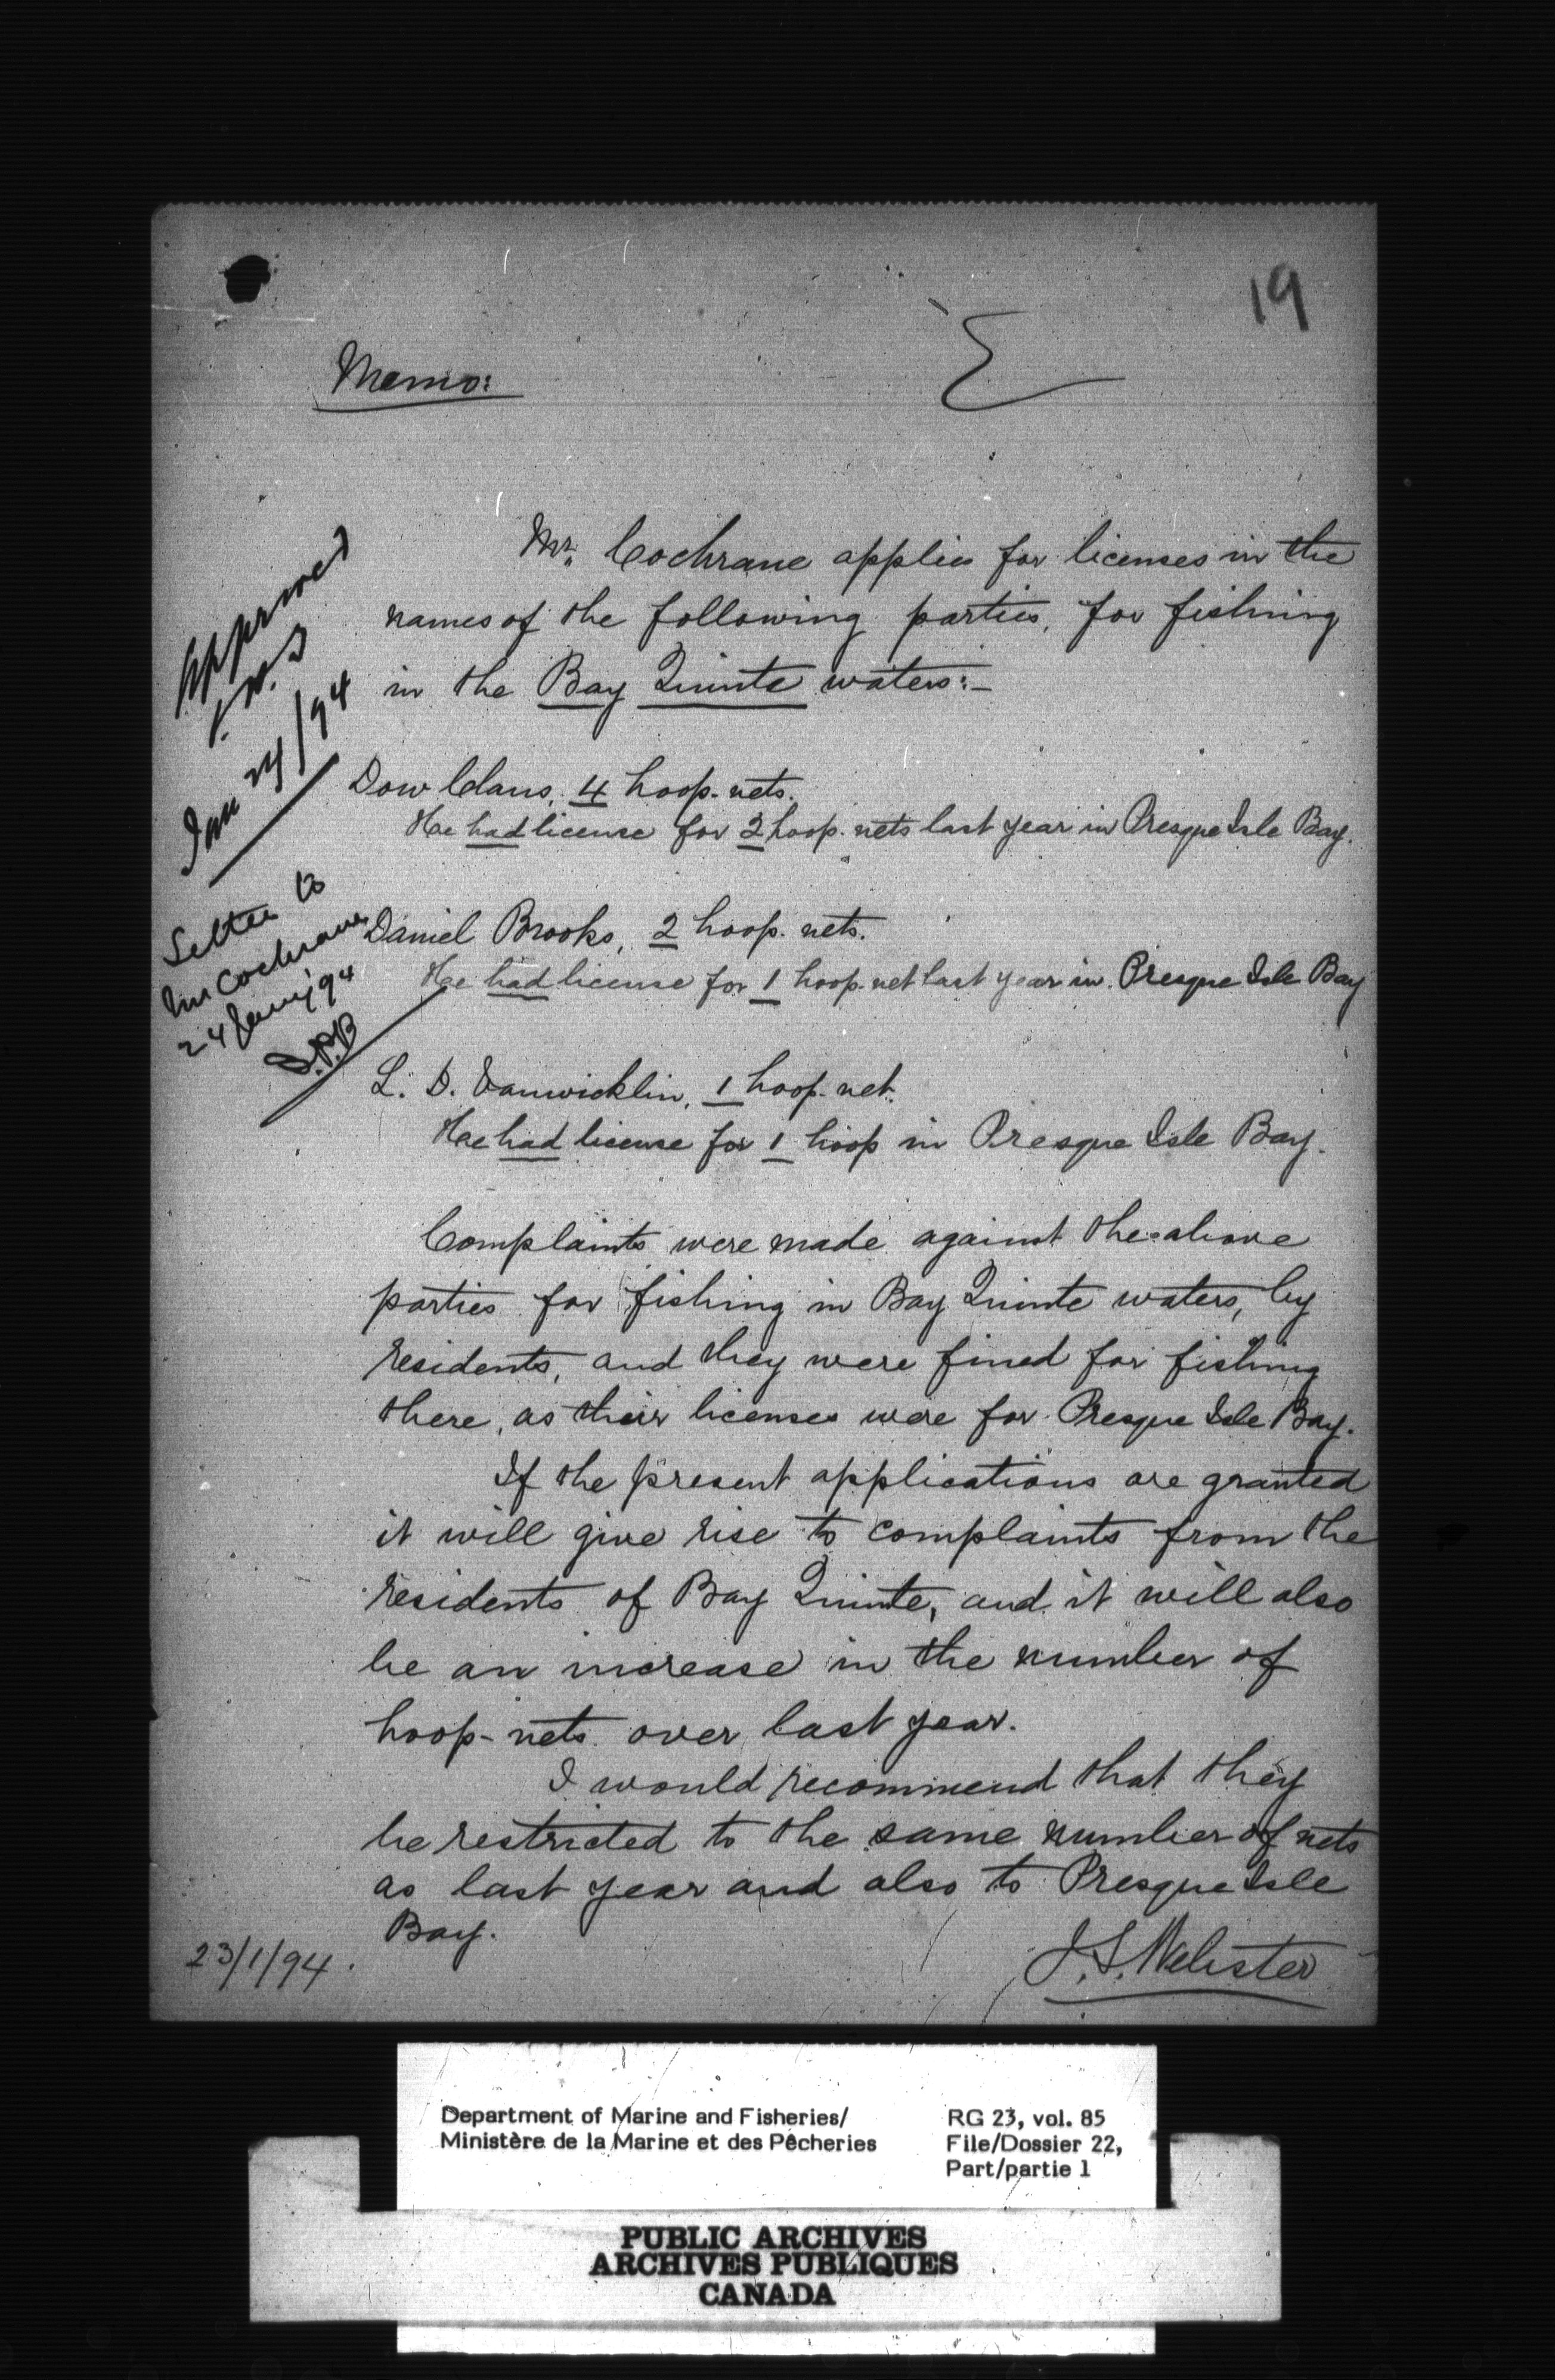 19
Memo:
Mr. Cochrane applies for licenses in the
names of the following parties, for fishing
in the Bay Quinte waters:-
Approved
Jan 24/94
Dow Claus, 4 hoop-nets.
He had license for 2 hoop-nets last year in Presque Isle Bay.
Letter to
Mr Cochrane
24 Jany '94
Daniel Brooks, 2 hoop-nets.
He had license for 1 hoop-net last year in Presque Isle Bay
L. D. Vanwicklin, 1 hoop-net.
He had license for 1 hoop in Presque Isle Bay.
Complaints were made against the above
parties for fishing in Bay Quinte waters, by
residents, and they were fined for fishing
there, as their licenses were for Presque Isle Bay.
If the present applications are granted
it will give rise to complaints from the
residents of Bay Quinte, and it will also
be an increase in the number of
hoop-nets over last year.
I would recommend that they
be restricted to the same number of nets
as last year and also to Presque Isle
Bay.
23/1/94.
J. S. Webster
Department of Marine and Fisheries/
Ministère de la Marine et des Pêcheries
RG 23, vol. 85
File/Dossier 22,
Part/partie 1
PUBLIC ARCHIVES
ARCHIVES PUBLIQUES
CANADA